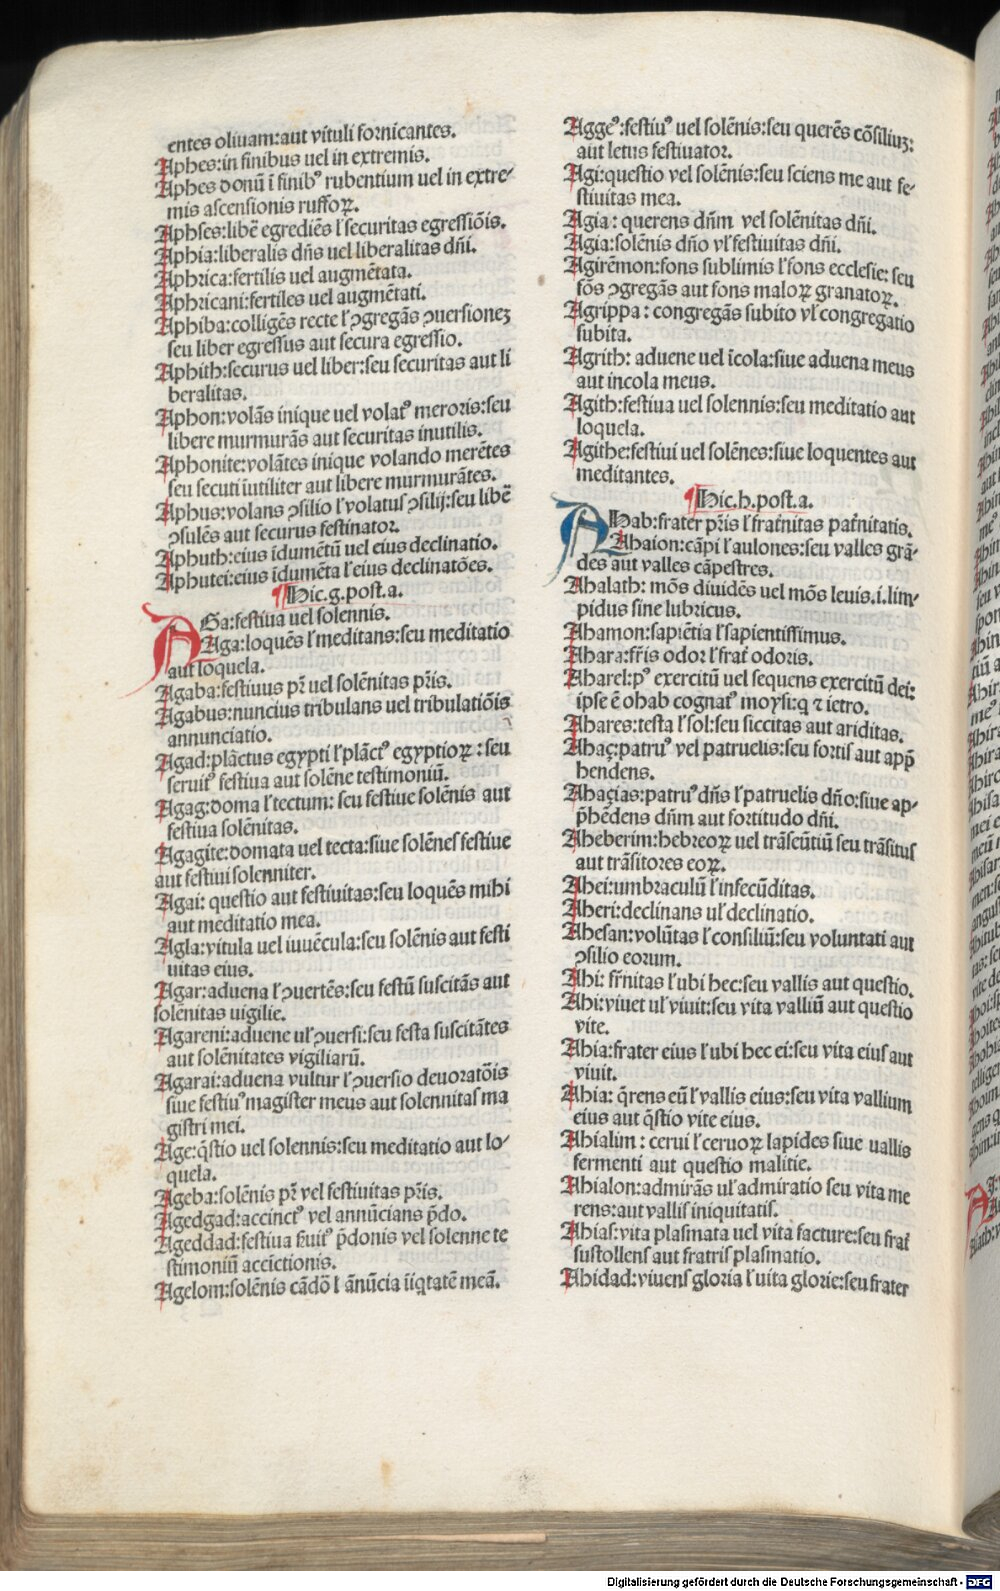 entes oliuam:aut vituli fornicantes.
Aphes:in finibus uel in extremis.
Aphes donū ī finibꝰ rubentium uel in extre⸗
mis ascensionis ruffoꝝ.
Aphses:libē egrediēs ł securitas egressiōis.
Aphia:liberalis dn̄s uel liberalitas dn̄i.
Aphrica:fertilis uel augmētata.
Aphricani:fertiles uel augmētati.
Aphiba:colligēs recte ł ꝯgregās ꝯuersionez
seu liber egressus aut secura egressio.
Aphith:securus uel liber:seu securitas aut li
beralitas.
Aphon:volās inique uel volatꝰ meroris:seu
libere murmurās aut securitas inutilis.
Aphonite:volātes inique volando merētes
seu secuti īutiliter aut libere murmurātes.
Aphus:volans ꝯsilio ł volatus ꝯsilij:seu libē
ꝯsulēs aut securus festinator.
Aphuth:eius īdumētū uel eius declinatio.
Aphutei:eius īdumēta ł eius declinatōes.
¶Hic.g.post.a.
AGa:festiua uel solennis.
Aga:loquēs ł meditans:seu meditatio
aut loquela.
Agaba:festiuus pr̄ uel solēnitas pr̄is.
Agabus:nuncius tribulans uel tribulatiōis
annunciatio.
Agad:plāctus egypti ł plāctꝰ egyptioꝝ:seu
seruitꝰ festiua aut solēne testimoniū.
Agag:doma ł tectum: seu festiue solēnis aut
festiua solēnitas.
Agagite:domata uel tecta:siue solēnes festiue
aut festiui solenniter.
Agai: questio aut festiuitas:seu loquēs mihi
aut meditatio mea.
Agla:vitula uel iuuēcula:seu solēnis aut festi
uitas eius.
Agar:aduena ł ꝯuertēs:seu festū suscitās aut
solēnitas uigilie.
Agareni:aduene uł ꝯuersi:seu festa suscitātes
aut solēnitates vigiliarū.
Agarai:aduena vultur ł ꝯuersio deuoratōis
siue festiuꝰ magister meus aut solennitas ma
gistri mei.
Age:q̄stio uel solennis:seu meditatio aut lo⸗
quela.
Ageba:solēnis pr̄ vel festiuitas pr̄is.
Agedgad:accinctꝰ vel annūcians p̄do.
Ageddad:festiua ẜuitꝰ p̄donis vel solenne te
stimoniū accictionis.
Agelom:solēnis cādō ł ānūcia īiqtatē meā.
Aggeꝰ:festiuꝰ uel solēnis:seu querēs cōsiliuꝫ:
aut letus festiuator.
Agi:questio vel solēnis:seu sciens me aut fe⸗
stiuitas mea.
Agia: querens dn̄m vel solēnitas dn̄i.
Agia:solēnis dn̄o vł festiuitas dn̄i.
Agirēmon:fons sublimis ł fons ecclesie: seu
fōs ꝯgregās aut fons maloꝝ granatoꝝ.
Agrippa: congregās subito vł congregatio
subita.
Agrith: aduene uel īcola:siue aduena meus
aut incola meus.
Agith:festiua uel solennis:seu meditatio aut
loquela.
Agithe:festiui uel solēnes:siue loquentes aut
meditantes.
¶Hic.h.post.a.
AHab:frater pr̄is ł fratn̄itas patn̄itatis.
Ahaion:cāpi ł aulones:seu valles grā⸗
des aut valles cāpestres.
Ahalath: mōs diuidēs uel mōs leuis.i.lim⸗
pidus sine lubricus.
Ahamon:sapiētia ł sapientissimus.
Ahara:fr̄is odor ł frat̄ odoris.
Aharel:pꝰ exercitū uel sequens exercitū dei:
ipse ē ohab cognatꝰ moysi:q ⁊ ietro.
Ahares:testa ł sol:seu siccitas aut ariditas.
Ahaç:patruꝰ vel patruelis:seu fortis aut app̄
hendens.
Ahaçias:patruꝰ dn̄s ł patruelis dn̄o:siue ap⸗
p̄hēdens dn̄m aut fortitudo dn̄i.
Aheberim:hebreoꝝ uel trāseūtiū seu trāsitus
aut trāsitores eoꝝ.
Ahei:umbraculū ł infecūditas.
Aheri:declinans uł declinatio.
Ahesan:volūtas ł consiliū:seu voluntati aut
ꝯsilio eorum.
Ahi: fr̄nitas ł ubi hec:seu vallis aut questio.
Ahi:viuet uł viuit:seu vita valliū aut questio
vite.
Ahia:frater eius ł ubi hec ei:seu vita eius aut
viuit.
Ahia: q̄rens eū ł vallis eius:seu vita vallium
eius aut q̄stio vite eius.
Ahialim: cerui ł ceruoꝝ lapides siue vallis
fermenti aut questio malitie.
Ahialon:admirās uł admiratio seu vita me
rens:aut vallis iniquitatis.
Ahias:vita plasmata uel vita facture:seu frat̄
sustollens aut fratris plasmatio.
Ahidad:viuens gloria ł uita glorie:seu frater
Digitalisierung gefördert durch die Deutsche Forschungsgemeinschaft - DFG